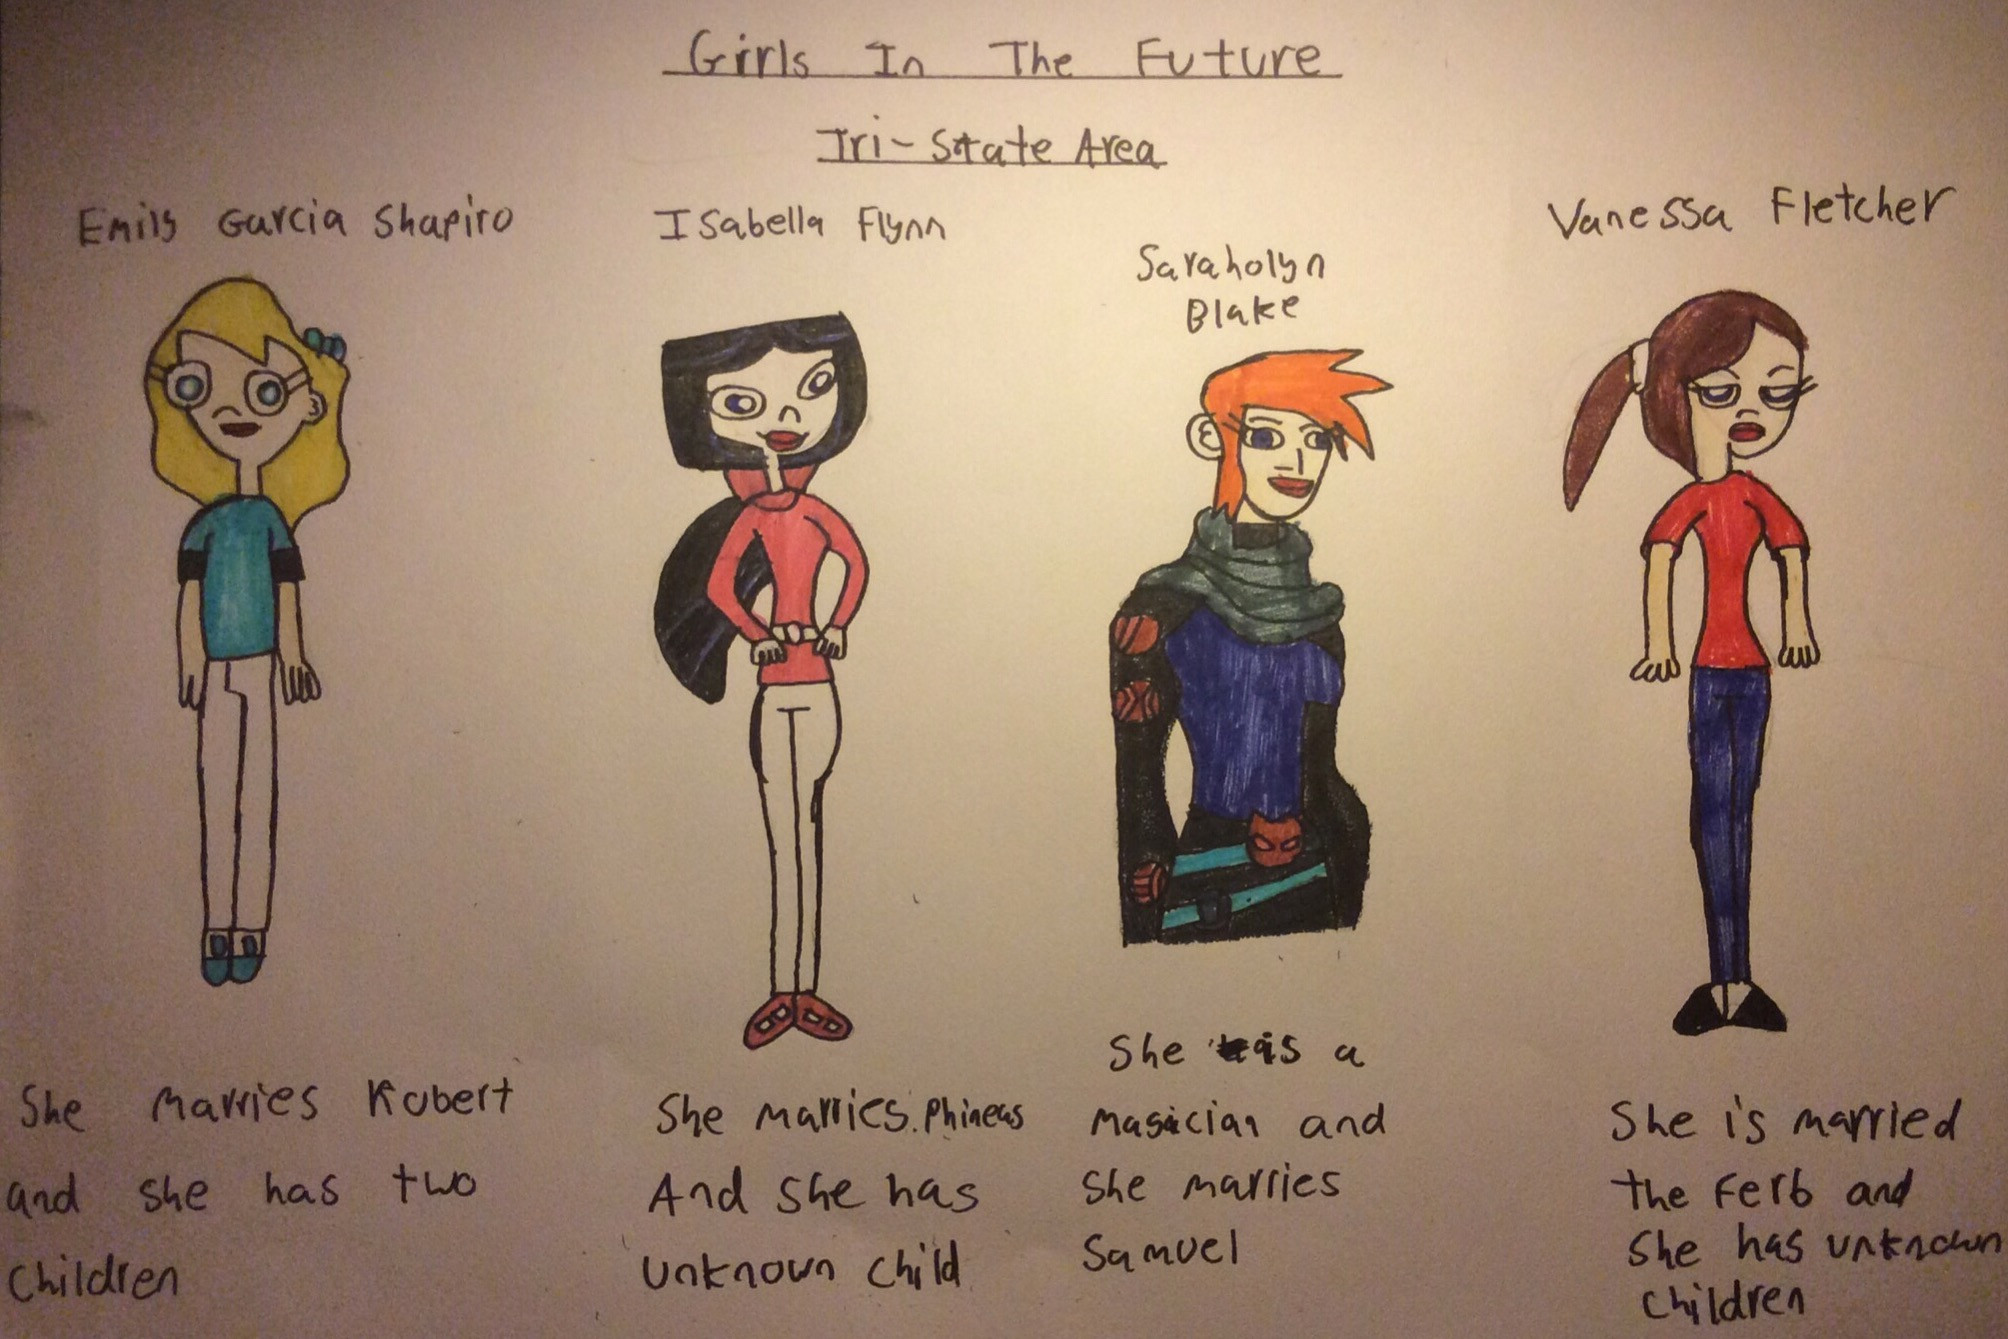 Girls In The Future
Tri-State Area
Emily Garcia Shapiro
Isabella Flynn
Saraholyn
Blake
Vanessa Fletcher
She marries Robert
and she has two
children
She marries Phineas
And she has
unknown child
She is a
magician and
she marries
Samuel
She is married
the Ferb and
she has unknown
children